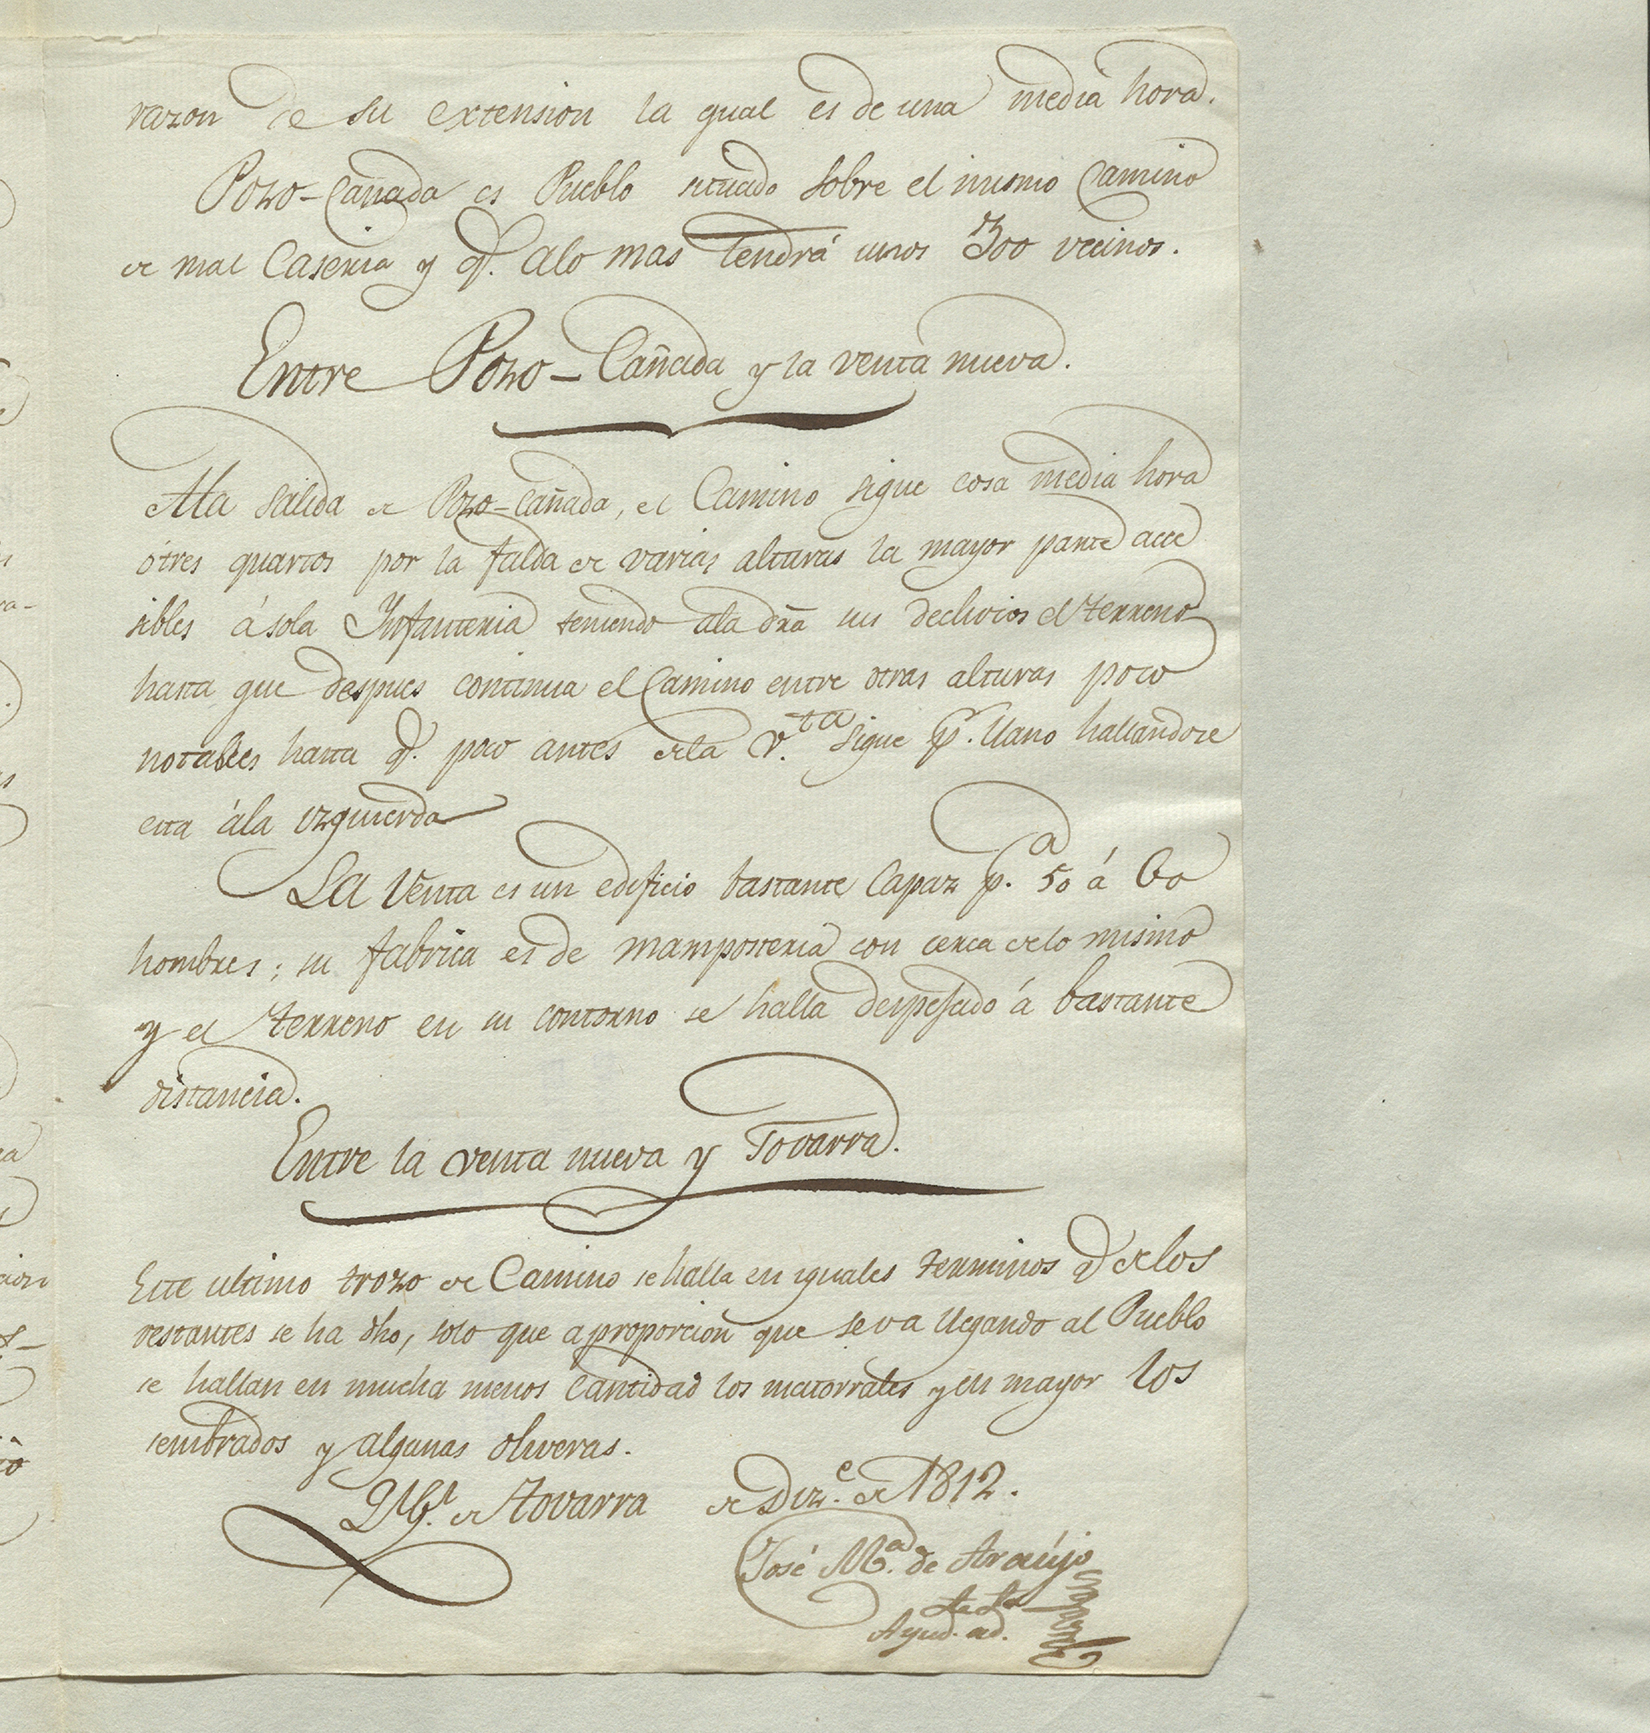 razon de su extension la qual es de una media hora.
Pozo-Cañada es Pueblo situado sobre el mismo Camino
de mal Caseria y q.e alo mas tendrá unos 300 vecinos.
Entre Pozo-Cañada y la venta nueva.
Ala salida de Pozo-Cañada, el Camino sigue cosa media hora
ótres quartos por la falda de varias alturas la mayor parte acce
sibles á sola Infanteria teniendo ala dra un declivios el terreno
hasta que despues continua el Camino entre otras alturas poco
notables hasta q.e poco antes dela V.ta sigue p.r llano hallandose
esta ála izquierda
La Venta es un edificio bastante Capaz p.a 50 á 60
hombres; su fabrica es de mamposteria con cerca delo mismo
y el terreno en su contorno se halla despejado á bastante
distancia.
Entre la venta nueva y Tovarra.
Este ultimo trozo de Camino se halla en iguales terminos q.e delos
restantes se ha dho, solo que aproporcion que seva llegando al Pueblo
se hallan en mucha menos Cantidad los matorrales y en mayor los
sembrados y algunas oliveras.
Q.l G.l de Tovarra de Diz.e de 1812.
José M.a de Araújo
Ayud. ad.